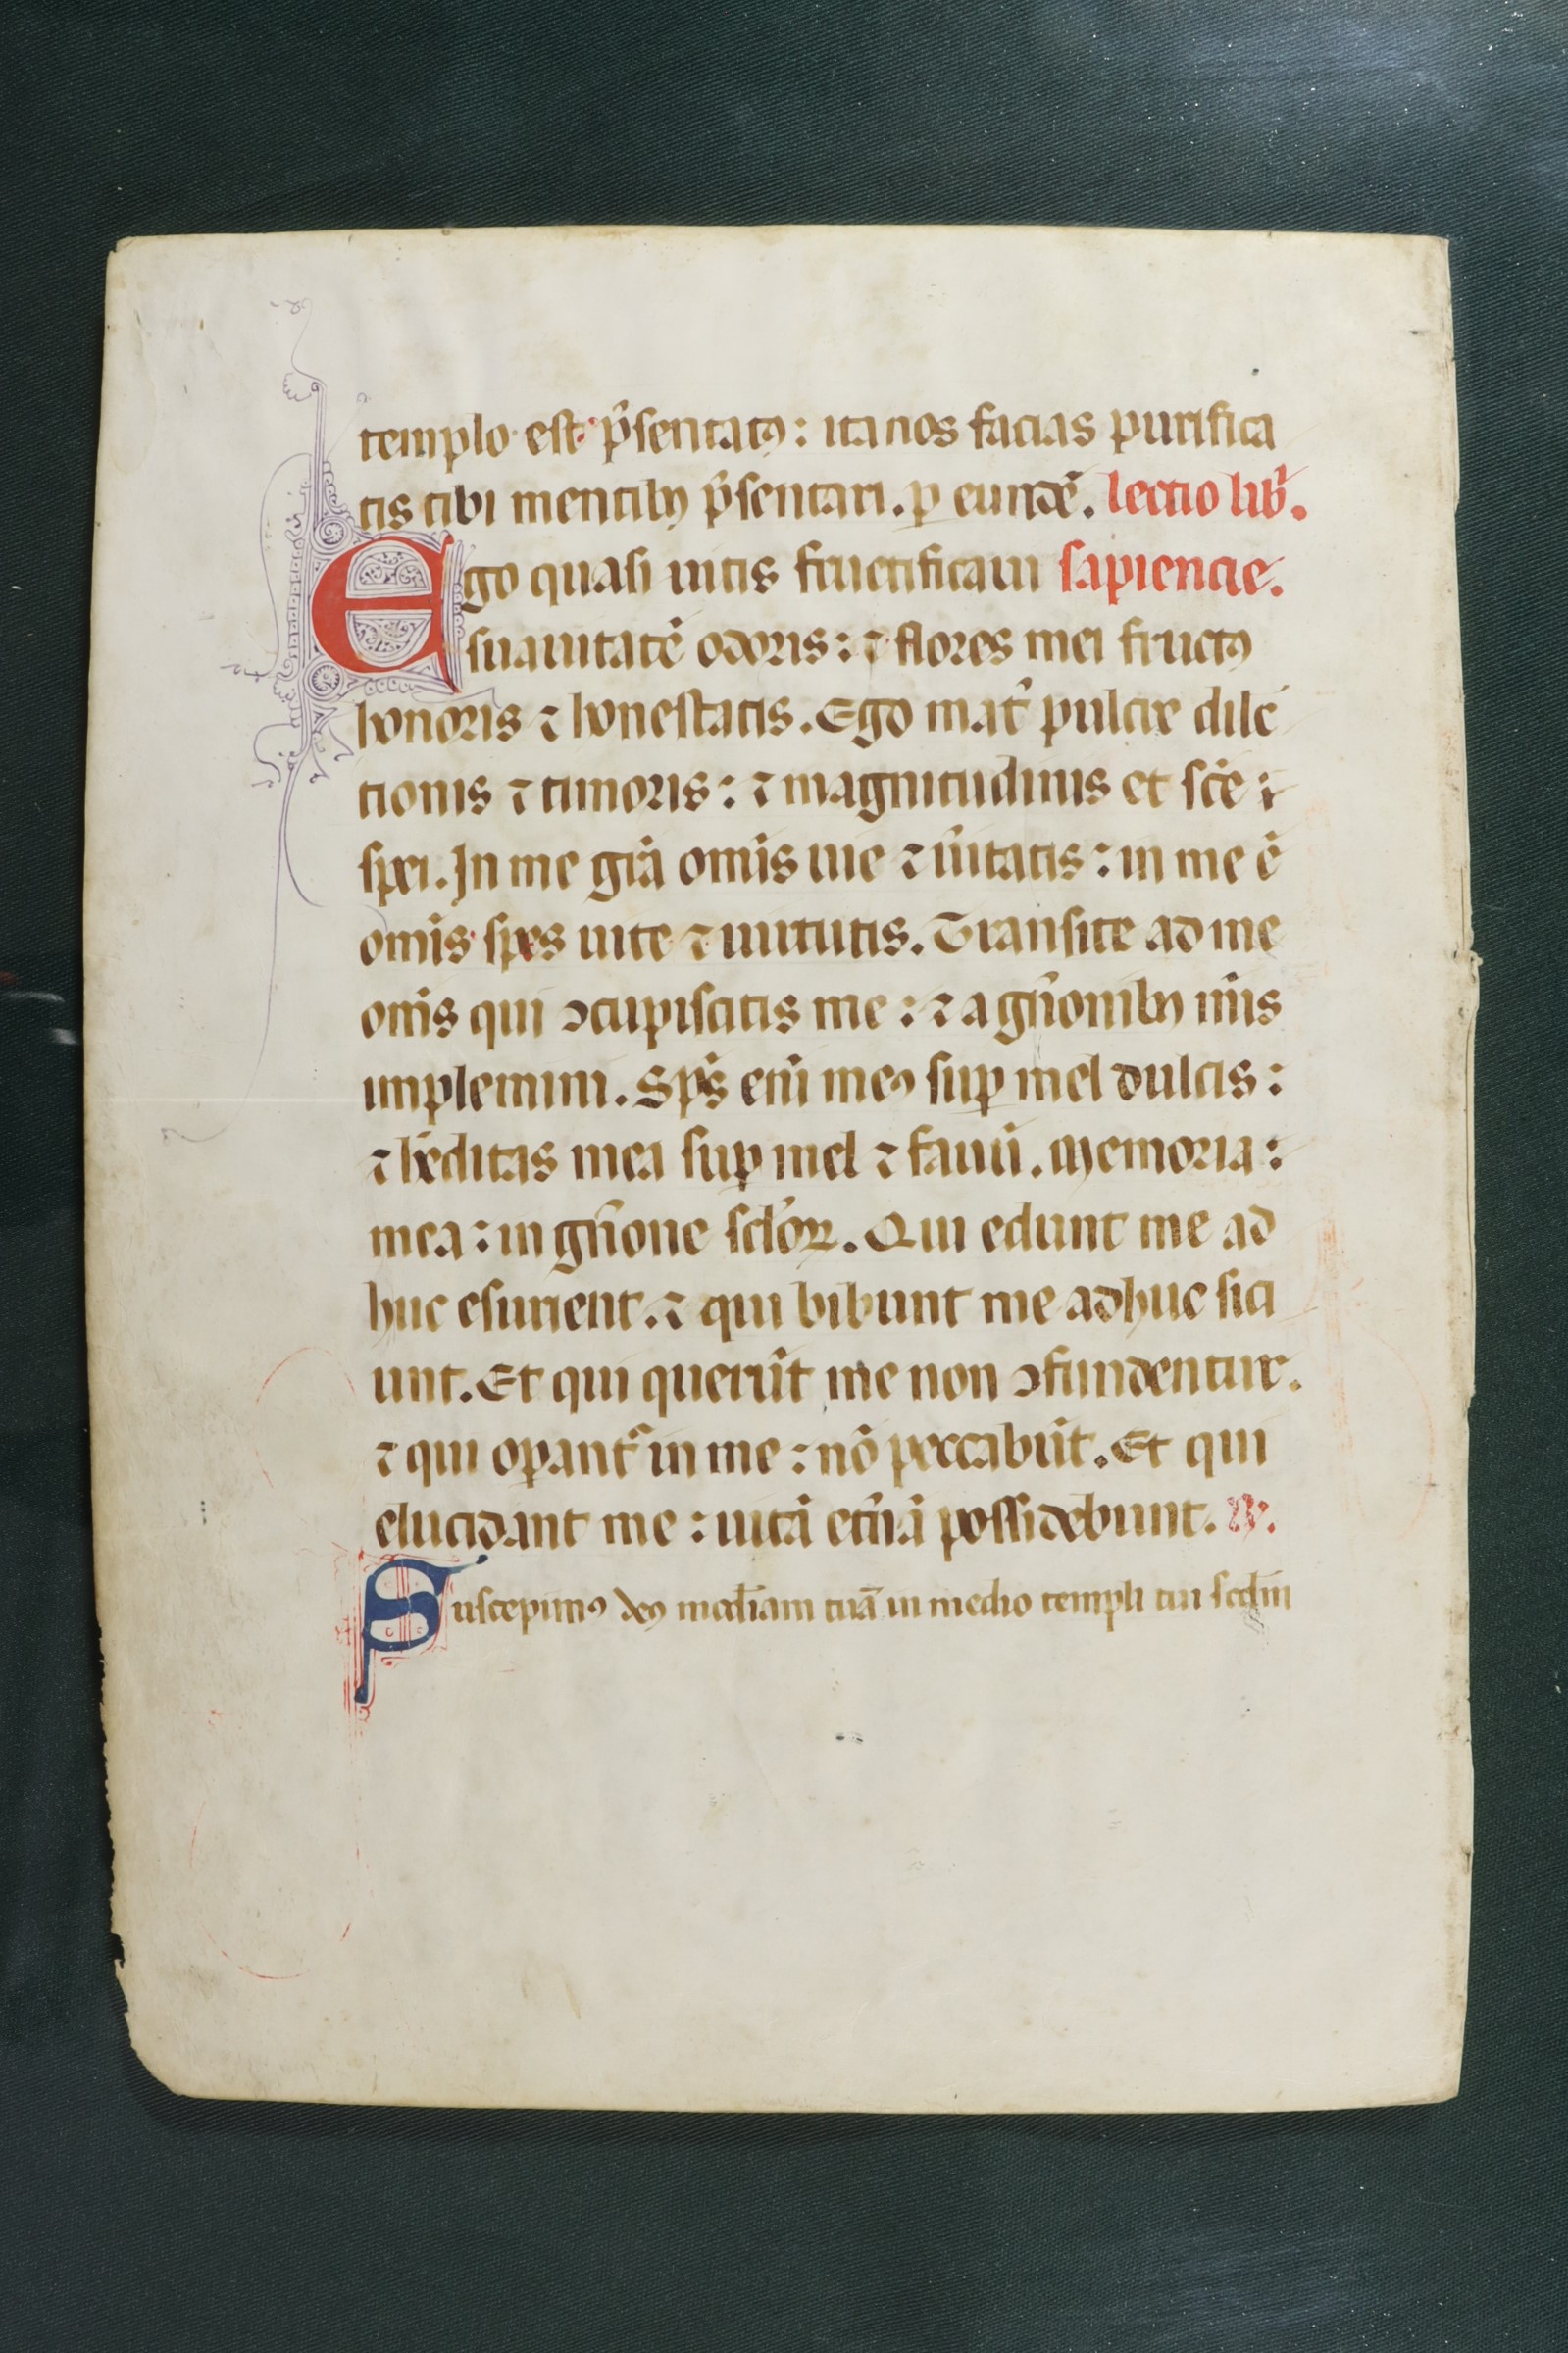 templo est p̃sentatꝰ: ita nos facias purifica
tis tibi mentibꝫ p̃sentari. ꝑ eundē. lectio lib̃.
Ego quasi uitis fructificaui sapiencie.
suauitatē odoris: ⁊ flores mei fructꝰ
honoris ⁊ honestatis. Ego mat̃ pulcre dilc̄
tionis ⁊ timoris: ⁊ magnitudinis et sc̄e :
spei. In me gr̃a om̄is uie ⁊ ũitatis: in me ē
om̄is spes uite ⁊ uirtutis. Transite ad me
om̄s qui ꝯcupiscitis me: ⁊ a gñonibꝫ m̃is
implemini. Sp̃s eni̅ meꝰ suꝑ mel dulcis:
⁊ h̃editas mea suꝑ mel ⁊ fauū. Memoria:
mea: in gñone sc̃loꝝ. Qui edunt me ad
huc esurient. ⁊ qui bibunt me adhuc sici
unt. Et qui querūt me non ꝯfundentur.
⁊ qui oꝑant̃ in me: nō peccabūt. Et qui
elucidant me: uitā et̃nā possidebunt. ℟.
Suscepimꝰ deꝰ mĩcdiam tuā in medio templi tui scd̄m